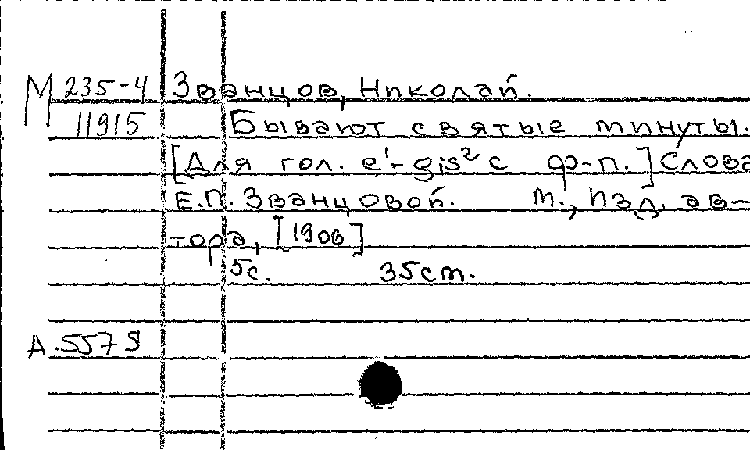 М 235-4 Званцов, Николай.
11915 Бывают святые минуты.
[Для гол. e¹-gis² с ф-п.] Слова
Е.П. Званцовой. М., изд. ав-
тора, [1908]
5с. 35ст.
А.5578